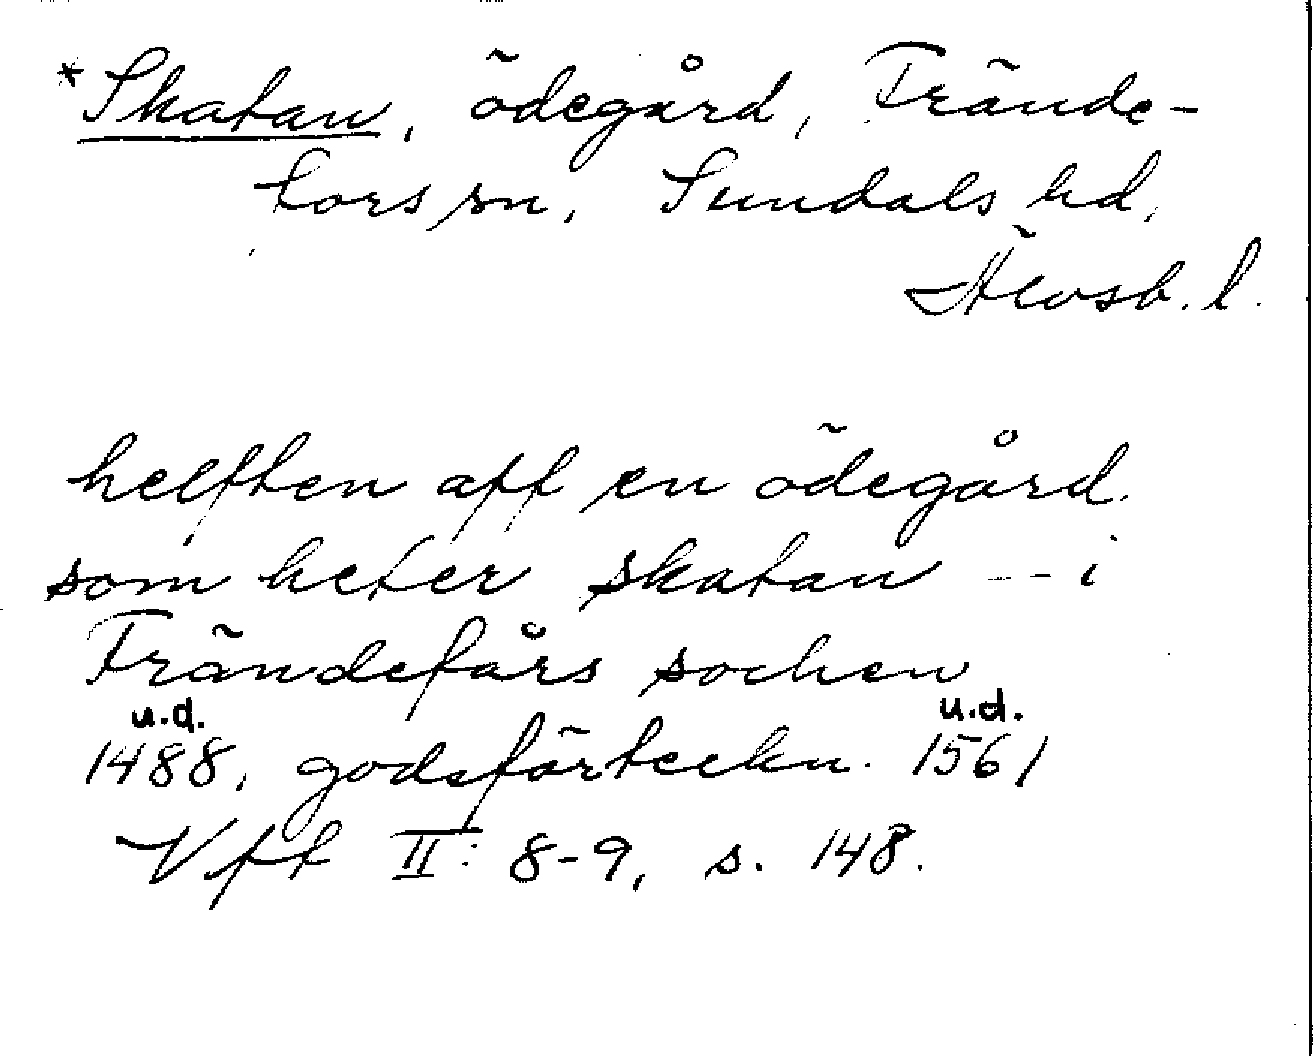 *Skatan, ödegård, Frände-
fors sn, Sundals hd,
Älvsb. l.
helften aff en ödegård
som heter skatan -- i
Frändefårs sochen
u.d. u.d.
1488, godsförteckn. 1561
Vff II: 8-9, s. 148.